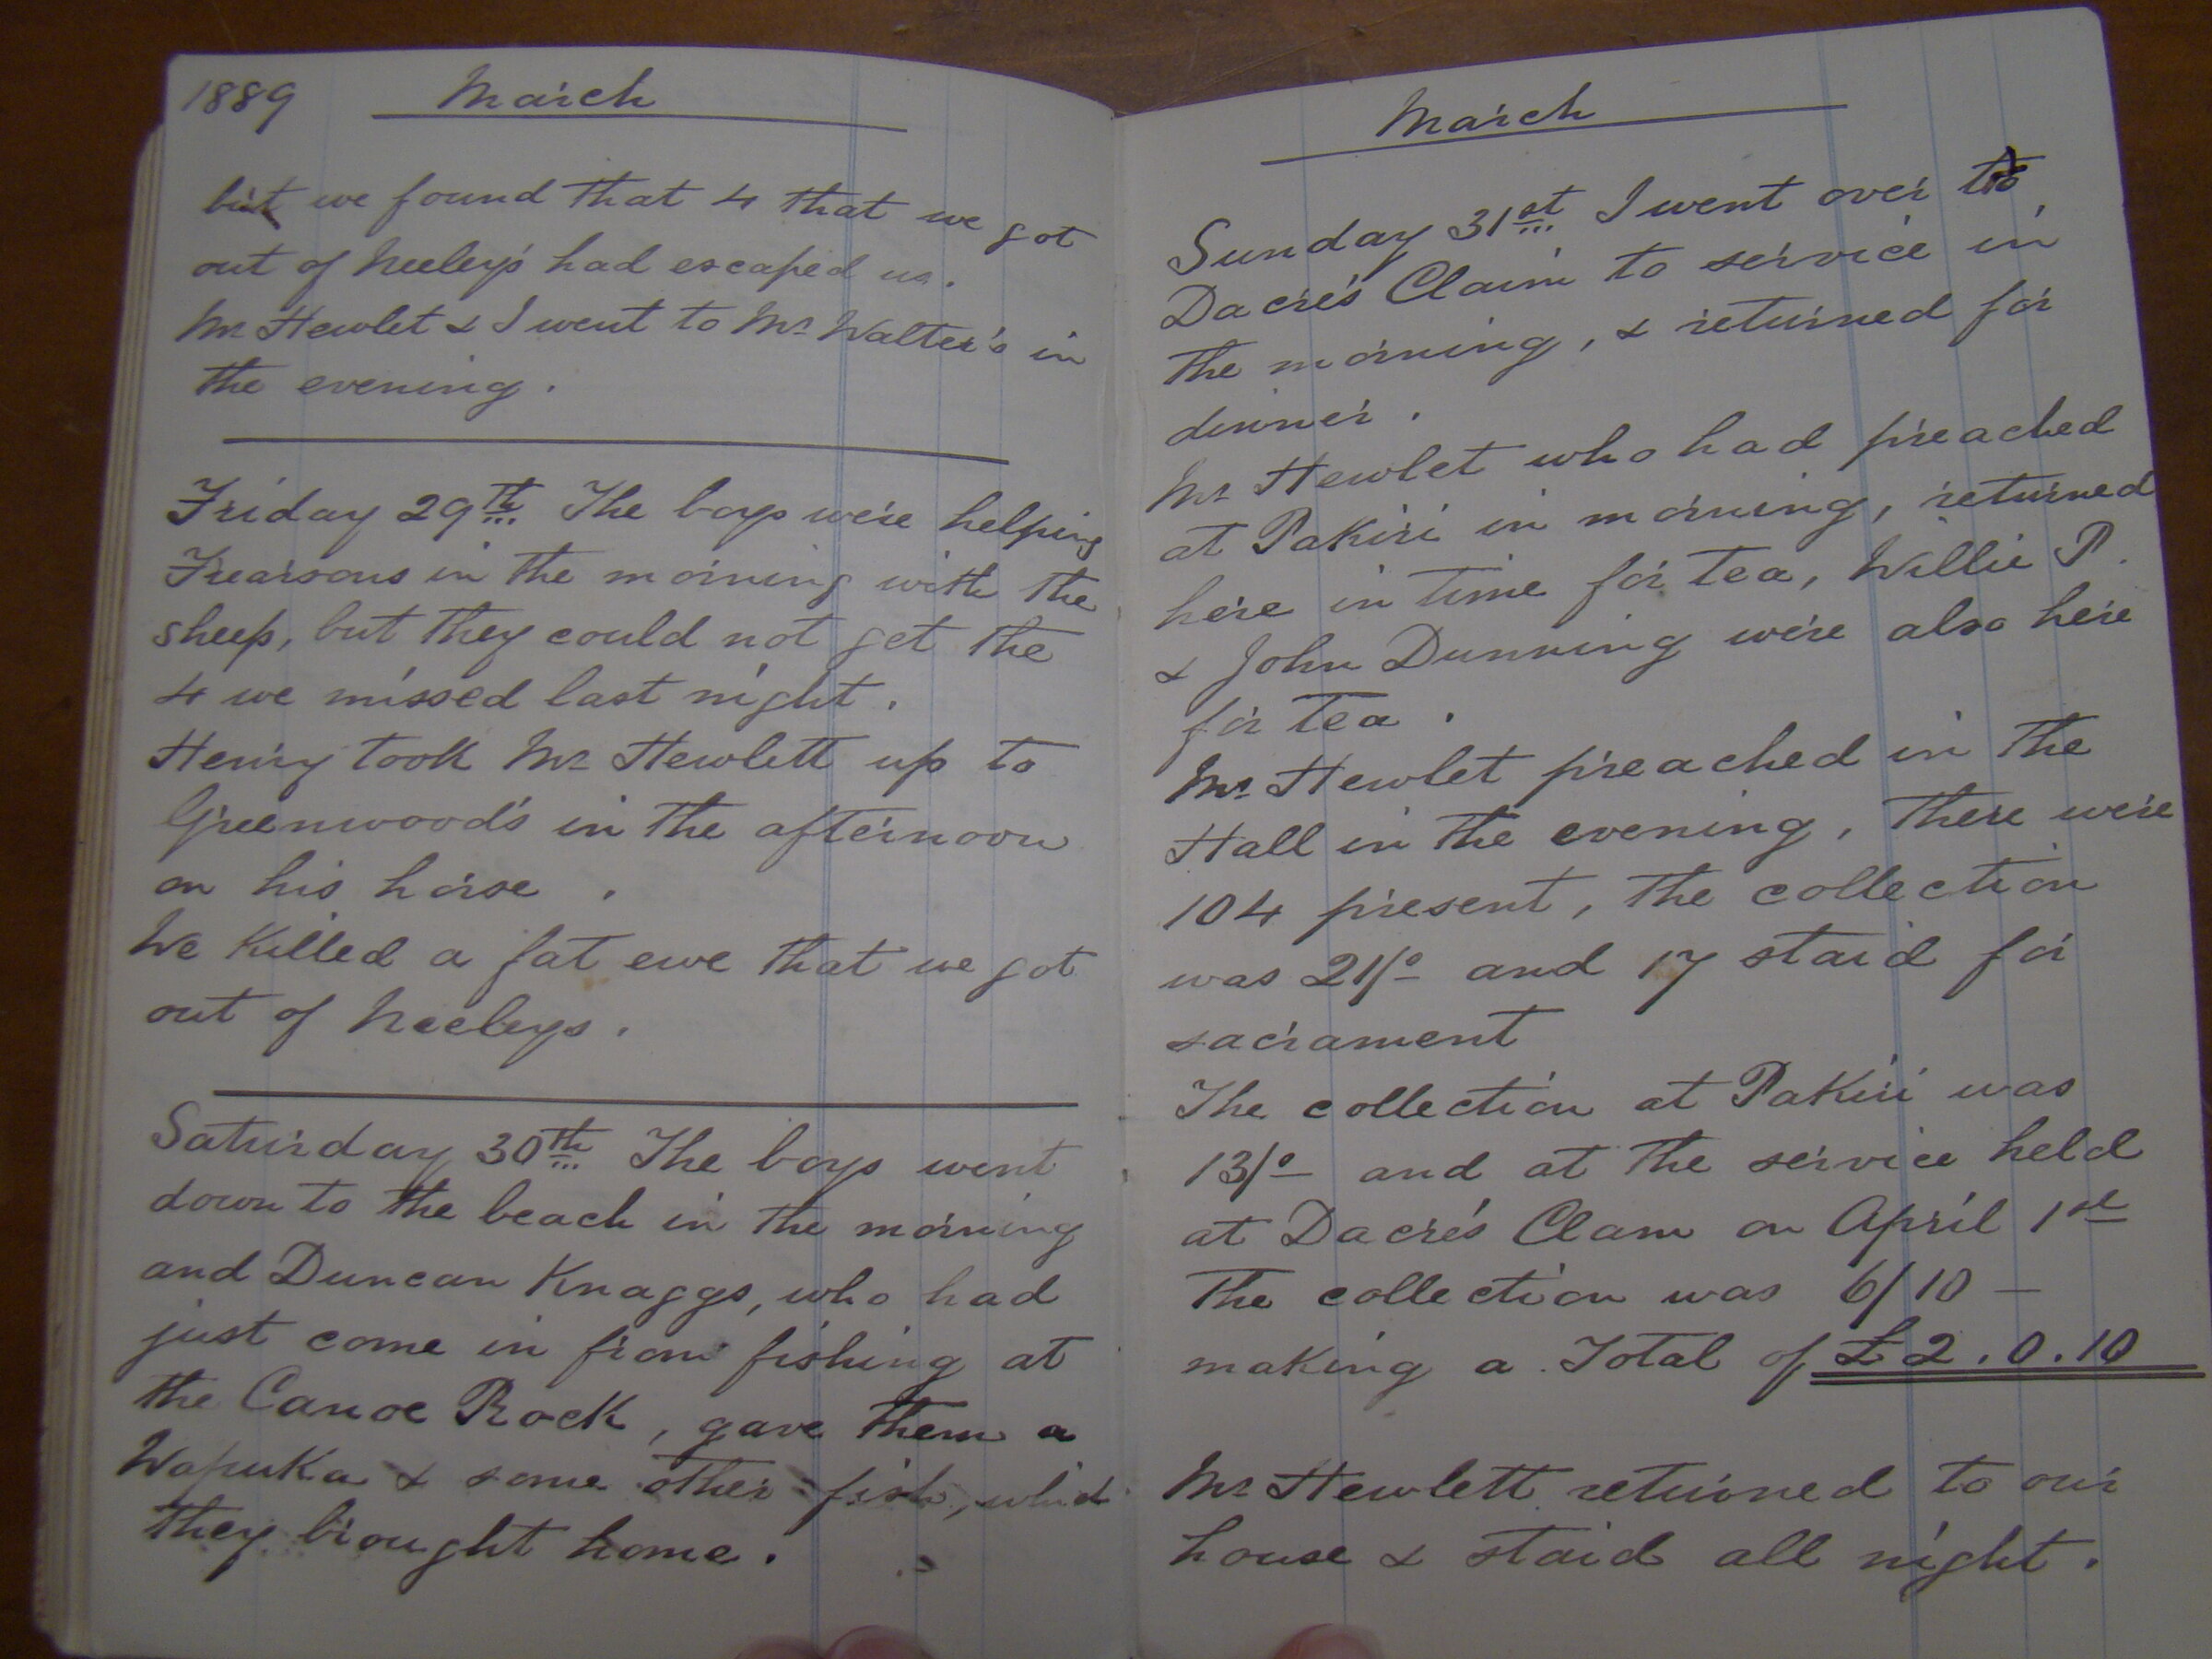 1889 March
but we found that 4 that we got
out of Neeley's had escaped us.
Mr Hewlet & I went to Mr Walter's in
the evening.
Friday 29th The boys were helping
Frearsons in the morning with the
sheep, but they could not get the
4 we missed last night.
Henry took Mr Hewlett up to
Greenwood's in the afternoon
on his horse.
We killed a fat ewe that we got
out of Neeleys.
Saturday 30th The boys went
down to the beach in the morning
and Duncan Knaggs, who had
just come in from fishing at
the Canoe Rock, gave them a
Wapuka & some other fish, which
they brought home.
March
Sunday 31st I went over to
Dacre's Claim to service in
the morning, & returned for
dinner.
Mr Hewlet who had preached
at Pakiri in morning, returned
here in time for tea, Willie P.
& John Dunning were also here
for tea.
Mr Hewlet preached in the
Hall in the evening, There were
104 present, the collection
was 21/0 and 17 staid for
sacrament
The collection at Pakiri was
13/0 and at the service held
at Dacre's Clam on April 1st
The collection was 6/10 —
making a Total of £2.0.10
Mr Hewlett returned to our
house & staid all night.